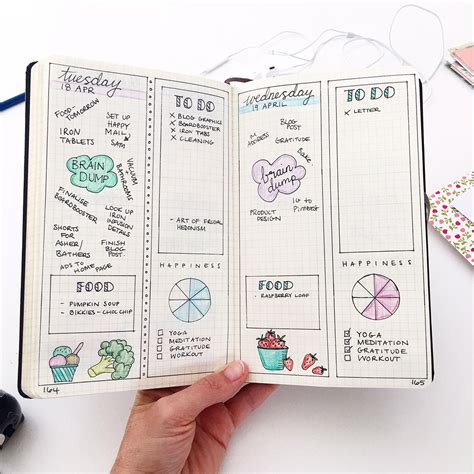 tuesday
18 APR
FOOD-
TOMORROW
SET UP
HAPPY
MAIL
SATH
IRON
TABLETS
VACUUM
BATHROOMS
BRAIN
DUMP
FINALISE
BOARDBOOSTER
LOOK UP
IRON
INFUSION
DETAILS
SHORTS
FOR
ASHER/
BATHERS
FINISH
BLOG
POST
ADS TO
HOME PAGE
FOOD
- PUMPKIN SOUP
- BIKKIES - CHOC CHIP
164
TO DO
X BLOG GRAPHICS
X BOARDBOOSTER
X IRON TABS
X CLEANING
- ART OF FRUGAL
HEDONISM
HAPPINESS
YOGA
MEDITATION
GRATITUDE
WORKOUT
wednesday
19 APRIL
ADDRESS
BLOG
POST
GRATITUDE
Bake
brain
dump
PRODUCT
DESIGN
IG to
Pinterest
FOOD
- RASPBERRY LOAF
TO DO
X LETTER
HAPPINESS
YOGA
MEDITATION
GRATITUDE
WORKOUT
165